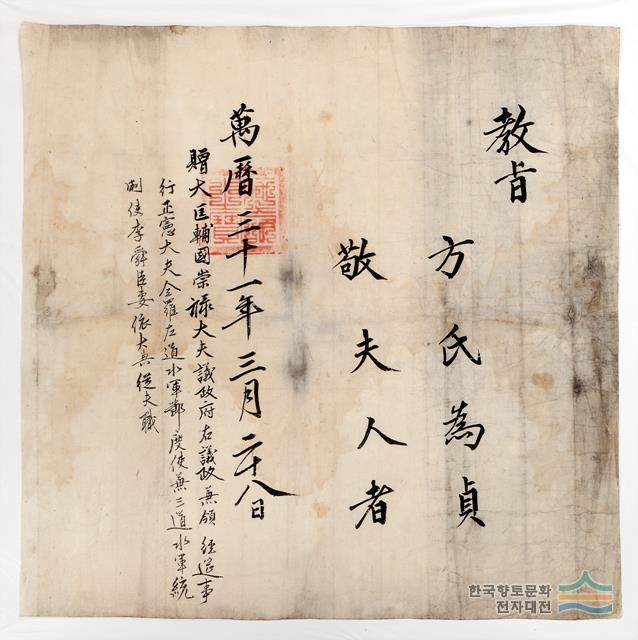 教旨
方氏為貞
敬夫人者
萬曆三十一年三月二十八日
贈大匡輔國崇祿大夫議政府右議政兼領經筵事
行正憲大夫全羅左道水軍節度使兼三道水軍統
制使李舜臣妻依大典從夫職
한국향토문화
전자대전